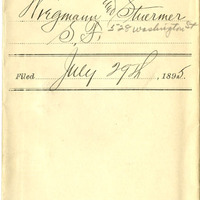 Wregmann and Stuermer
S. F. 528 Washington St
Filed July 29th, 1895.